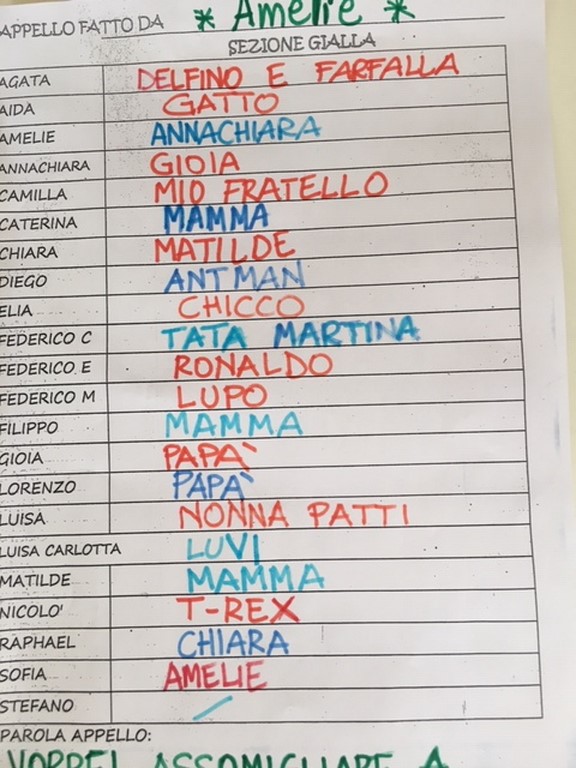 APPELLO FATTO DA * Amelie *
SEZIONE GIALLA
AGATA DELFINO E FARFALLA
AIDA GATTO
AMELIE ANNACHIARA
ANNACHIARA GIOIA
CAMILLA MIO FRATELLO
CATERINA MAMMA
CHIARA MATILDE
DIEGO ANTMAN
ELIA CHICCO
FEDERICO C TATA MARTINA
FEDERICO E RONALDO
FEDERICO M LUPO
FILIPPO MAMMA
GIOIA PAPA`
LORENZO PAPA`
LUISA NONNA PATTI
LUISA CARLOTTA LUVI
MATILDE MAMMA
NICOLO' T-REX
RAPHAEL CHIARA
SOFIA AMELIE
STEFANO /
PAROLA APPELLO:
VORREI ASSOMIGLIARE A